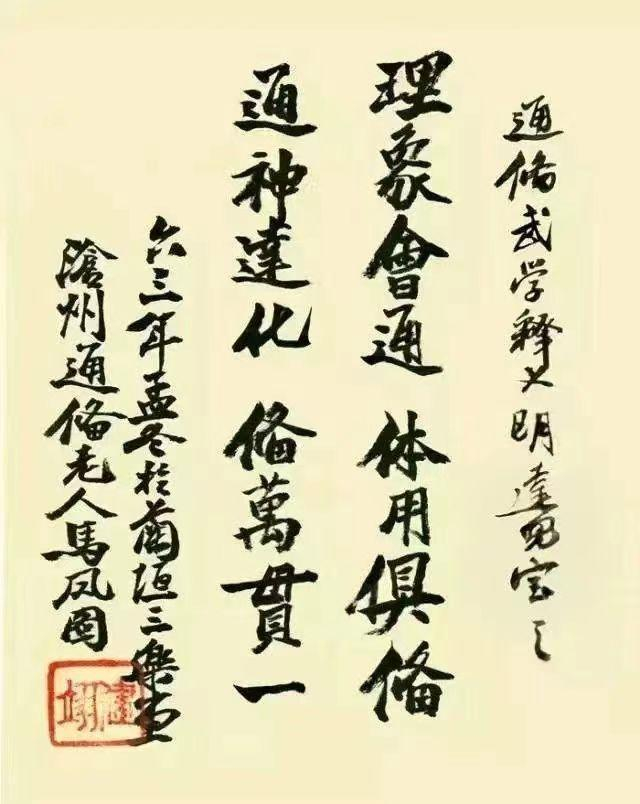 通備武学释义明達兒宝之
理象會通 体用俱備
通神達化 備萬貫一
六三年孟冬於蘭垣三樂堂
滄州通備老人馬凤圖
健翊